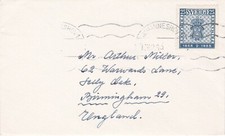 SVERIGE
1855 1955
Mr Arthur Miller,
62 Warwards Lane,
Selly Oak,
Birmingham 29,
England.